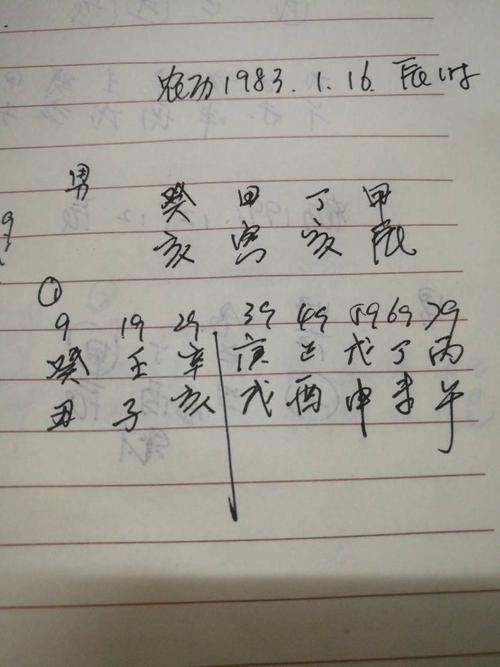 农历1983.1.16. 辰时
男 癸 甲 丁 甲
亥 寅 亥 辰
①
9 19 29 39 49 59 69 79
癸 壬 辛 庚 己 戊 丁 丙
丑 子 亥 戌 酉 申 未 午